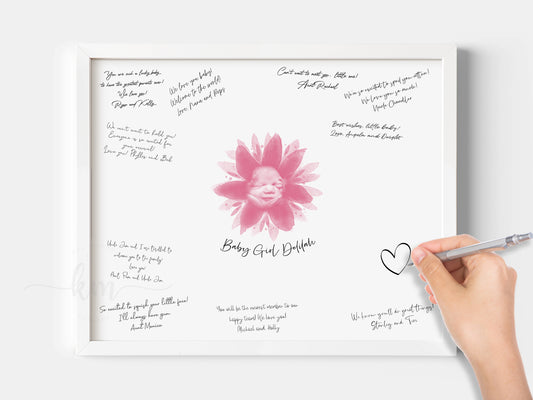 You are such a lucky baby,
to have the greatest parents ever!
We love you!
Papa and Kelly
We love you baby!
Welcome to the world!
Love, Nana and Pops
Can't wait to meet you, little one!
Aunt Rachael
We're so excited to spoil you
We love you so much!
Uncle Chandler
Best wishes, little baby!
Love, Angela and Dwight
We can't wait to hold you!
Everyone is so excited for
your arrival!
Love you! Phyllis and Bob
Baby Girl Delilah
Uncle Jim and I are thrilled to
welcome you to the family!
Love you!
Aunt Pam and Uncle Jim
km
So excited to squish your little face!
I'll always love you.
Aunt Monica
You will be the newest member to our
happy tribe! We love you!
Michael and Holly
We know you'll do great things!
Stanley and Teri